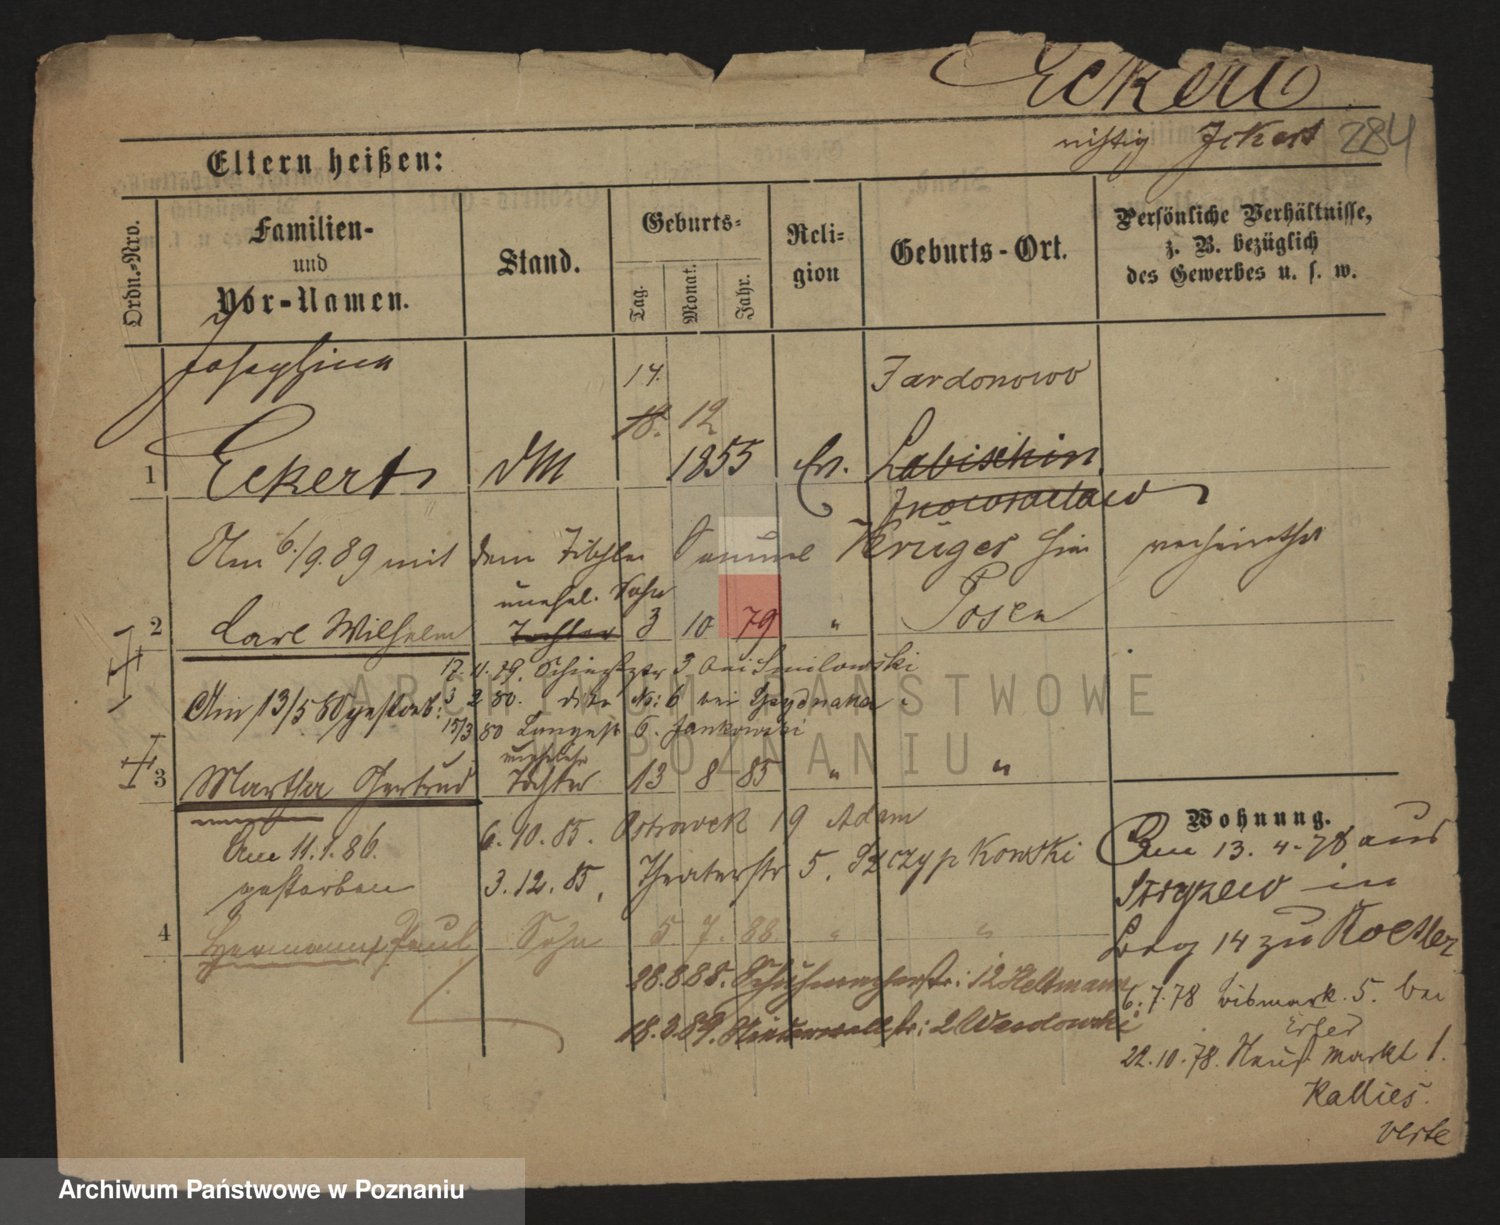 Eckert
richtig Jckert 284
Eltern heißen:
Ordn.-Nro.
Familien-
und
Vor-Namen.
Stand.
Geburts-
Tag.
Monat.
Jahr.
Reli-
gion
Geburts-Ort.
Persönliche Verhältnisse,
z. B. bezüglich
des Gewerbes u. s. w.
Josephina
14.
Jardonowo
18. 12
1 Eckert dM 1855 Ev. Labischin
Inowraclaw
Am 6./9.89 mit dem Tischler Samuel Krüger hier verheirathet
unehel. Sohn
2 Carl Wilhelm Tochter 3 10 79 " Posen
17. 11. 79. Schiesstr 3 bei Smilowski
Am 13/5 80 gestorb: 3 2 80. dito No: 6 bei
15/3 80 Langestr 6. Jankowski
uneheliche
3 Martha Gertrud Tochter 13 8 85 " "
6. 10. 85. 19 Adam
Am 11.1.86.
gestorben
3. 12. 85, Theaterstr 5. Szczypkowski
4 Hermann Paul Sohn 5 7. 88 " "
28.8.88. Schuhmacherstr: 12 Heltmann
18.3.89. 2
Wohnung.
Am 13. 4. 78 aus
in
14 zu
6.7.78 Bismark. 5. bei
22.10.78. Neust. Markt 1.
Kallies.
verte
ARCHIWUM PAŃSTWOWE
W POZNANIU
Archiwum Państwowe w Poznaniu